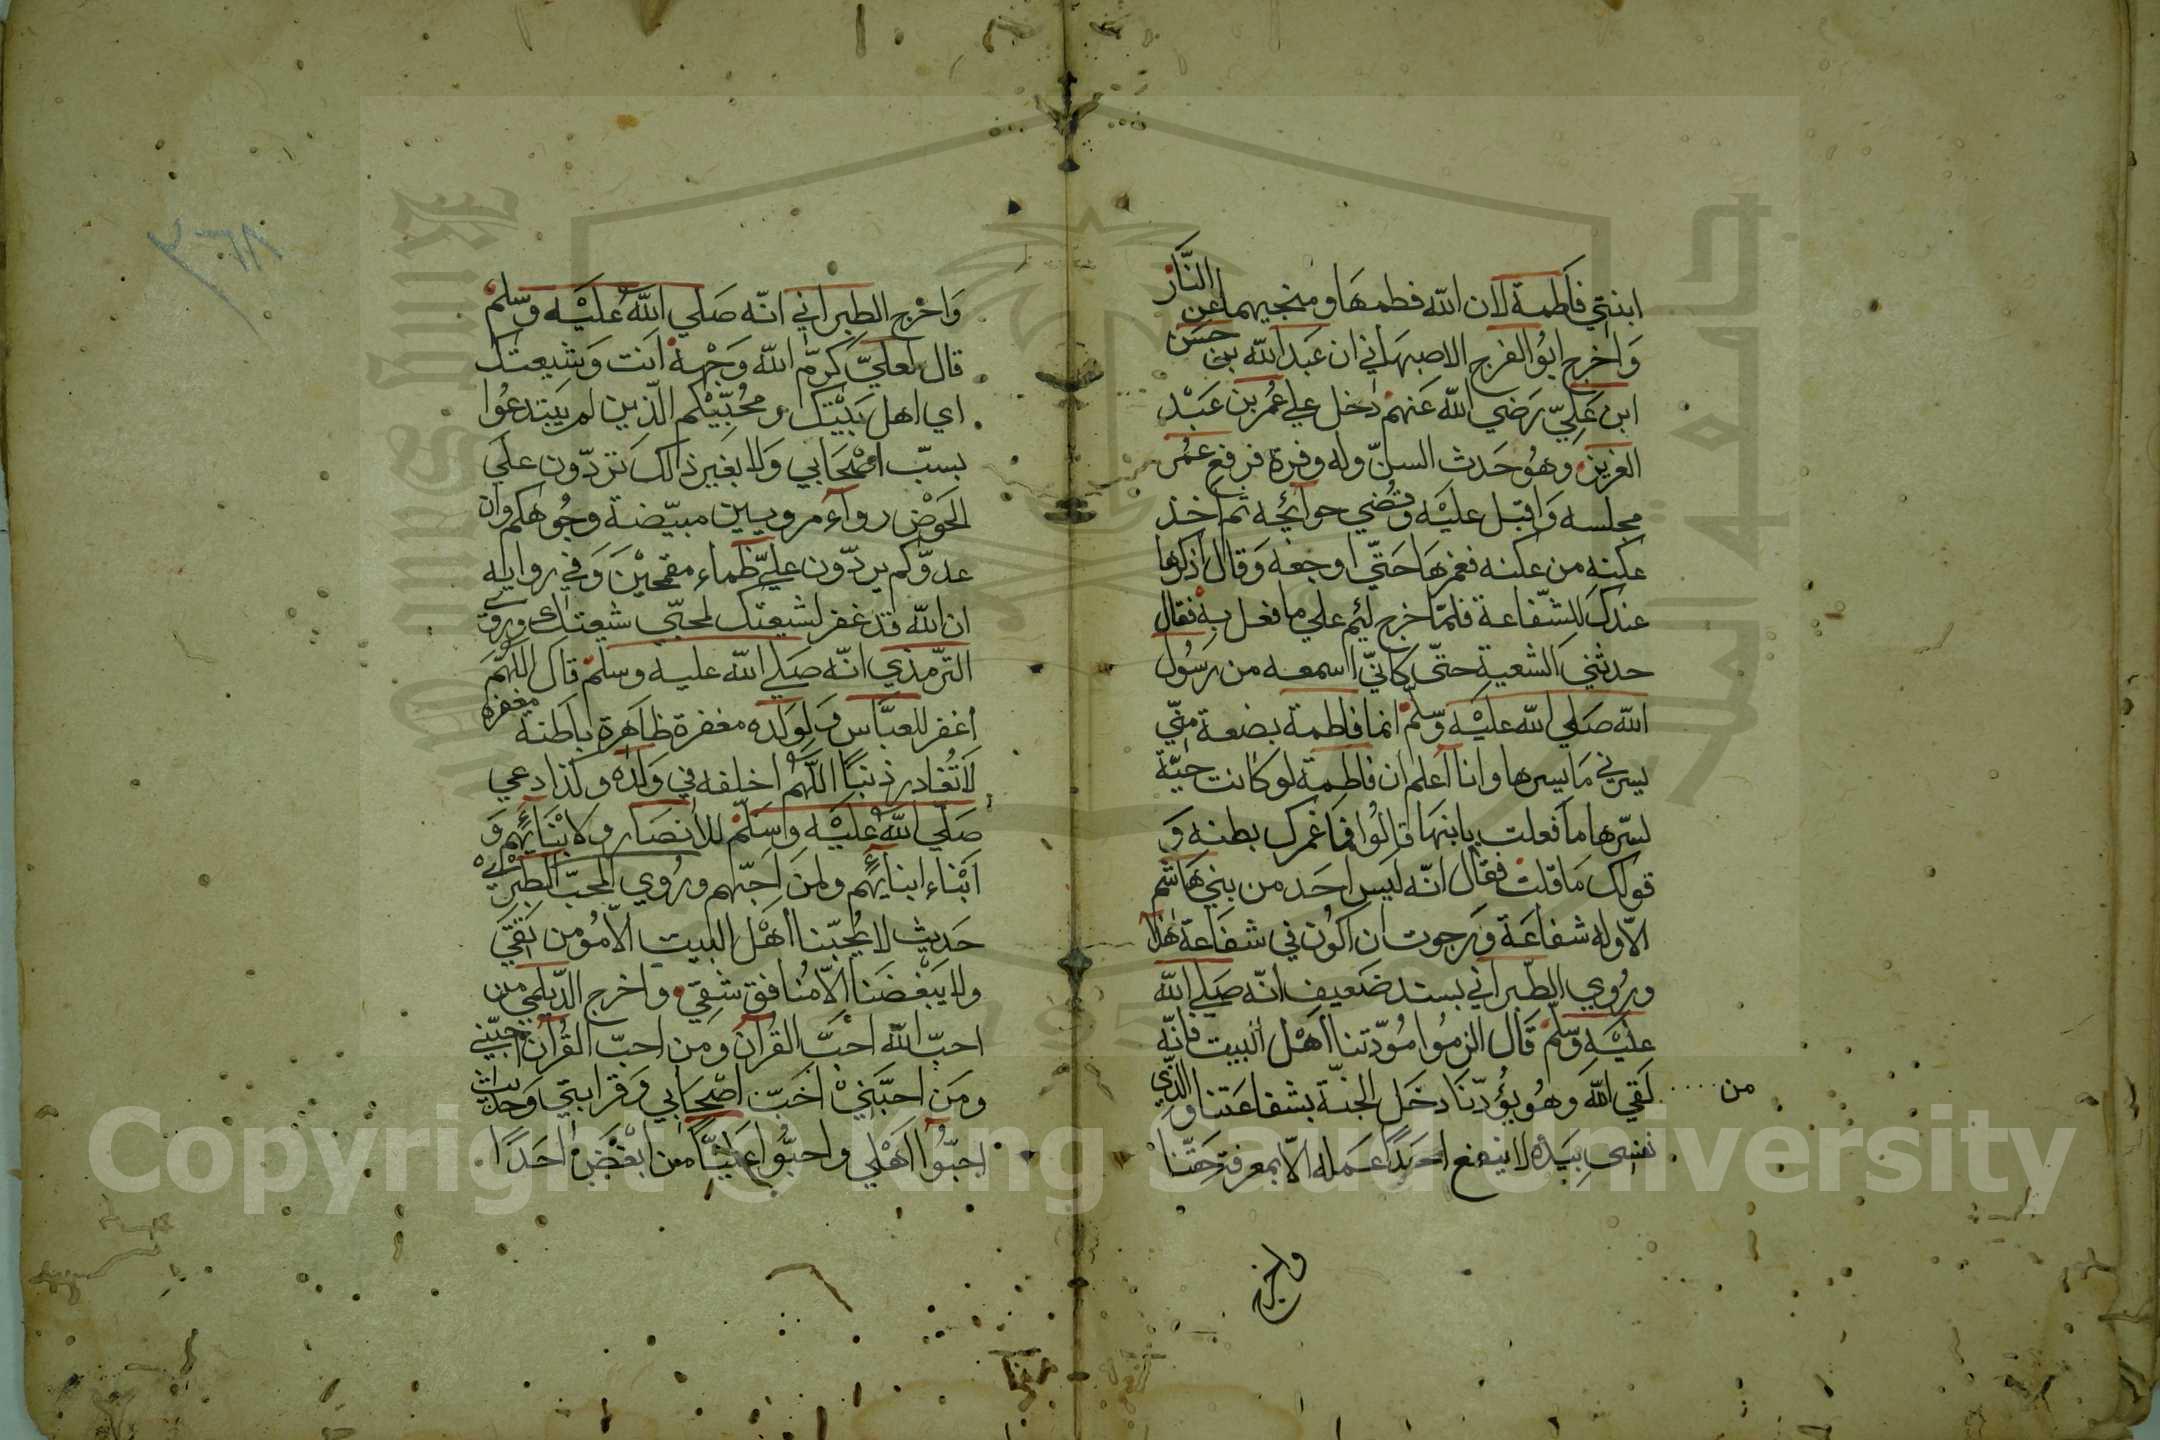 ابنتي فاطمة لان الله فطمها ومنجيهما عن النار
واخرج ابو الفرج الاصبهاني ان عبد الله بن حسن
ابن علي رضي الله عنهم دخل علي عمر بن عبد
العزيز وهو حدث السن وله وفرة فرفع عمر
مجلسه واقبل عليه وقضي حوائجه ثم اخذ
عكنه من عكنه فغمزها حتي اوجعه وقال اذكرها
عندك للشفاعة فلما خرج ليم علي ما فعل به فقال
حدثني الشعبة حتى كاني اسمعه من رسول
الله صلي الله عليه وسلم انما فاطمة بضعة مني
يسرني ما يسرها وانا اعلم ان فاطمة لو كانت حية
لسرها ما فعلت بابنها قالوا فما غمزك بطنه و
قولك ما قلت فقال انه ليس احد من بني هاشم
الا وله شفاعة ورجوت ان اكون في شفاعة هذا
وروي الطبراني بسند ضعيف انه صلي الله
عليه وسلم قال الزموا مودتنا اهل البيت فانه
من
لقي الله وهو يودنا دخل الجنة بشفاعتنا والذي
نفسي بيده لا ينفع احدا عمله الا بمعرفة حقنا
واخرج
واخرج الطبراني انه صلي الله عليه وسلم
قال لعلي كرم الله وجهه انت وشيعتك
اي اهل بيتك ومحبيكم الذين لم يبتدعوا
بسب اصحابي ولا بغير ذالك تردون علي
الحوض رواء مرويين مبيضة وجوهكم وان
عدوكم يردون علي ظماء مقمحين وفي رواية
ان الله قد غفر لشيعتك لمحبي شيعتك وروي
الترمذي انه صلي الله عليه وسلم قال اللهم
اغفر للعباس ولولده مغفرة ظاهرة باطنة مغفرة
لا تغادر ذنبا اللهم اخلفه في ولده وكذا دعي
صلي الله عليه وسلم للانصار ولابنائهم و
ابناء ابنائهم ولمن احبهم وروي المحب الطبري
حديث لا يحبنا اهل البيت الا مومن تقي
ولا يبغضنا الا منافق شقي واخرج الديلمي من
احب الله احب القران ومن احب القران احبني
ومن احبني احب اصحابي وقرابتي وحديث
احبوا اهلي واحبوا عليا من ابغض احدا